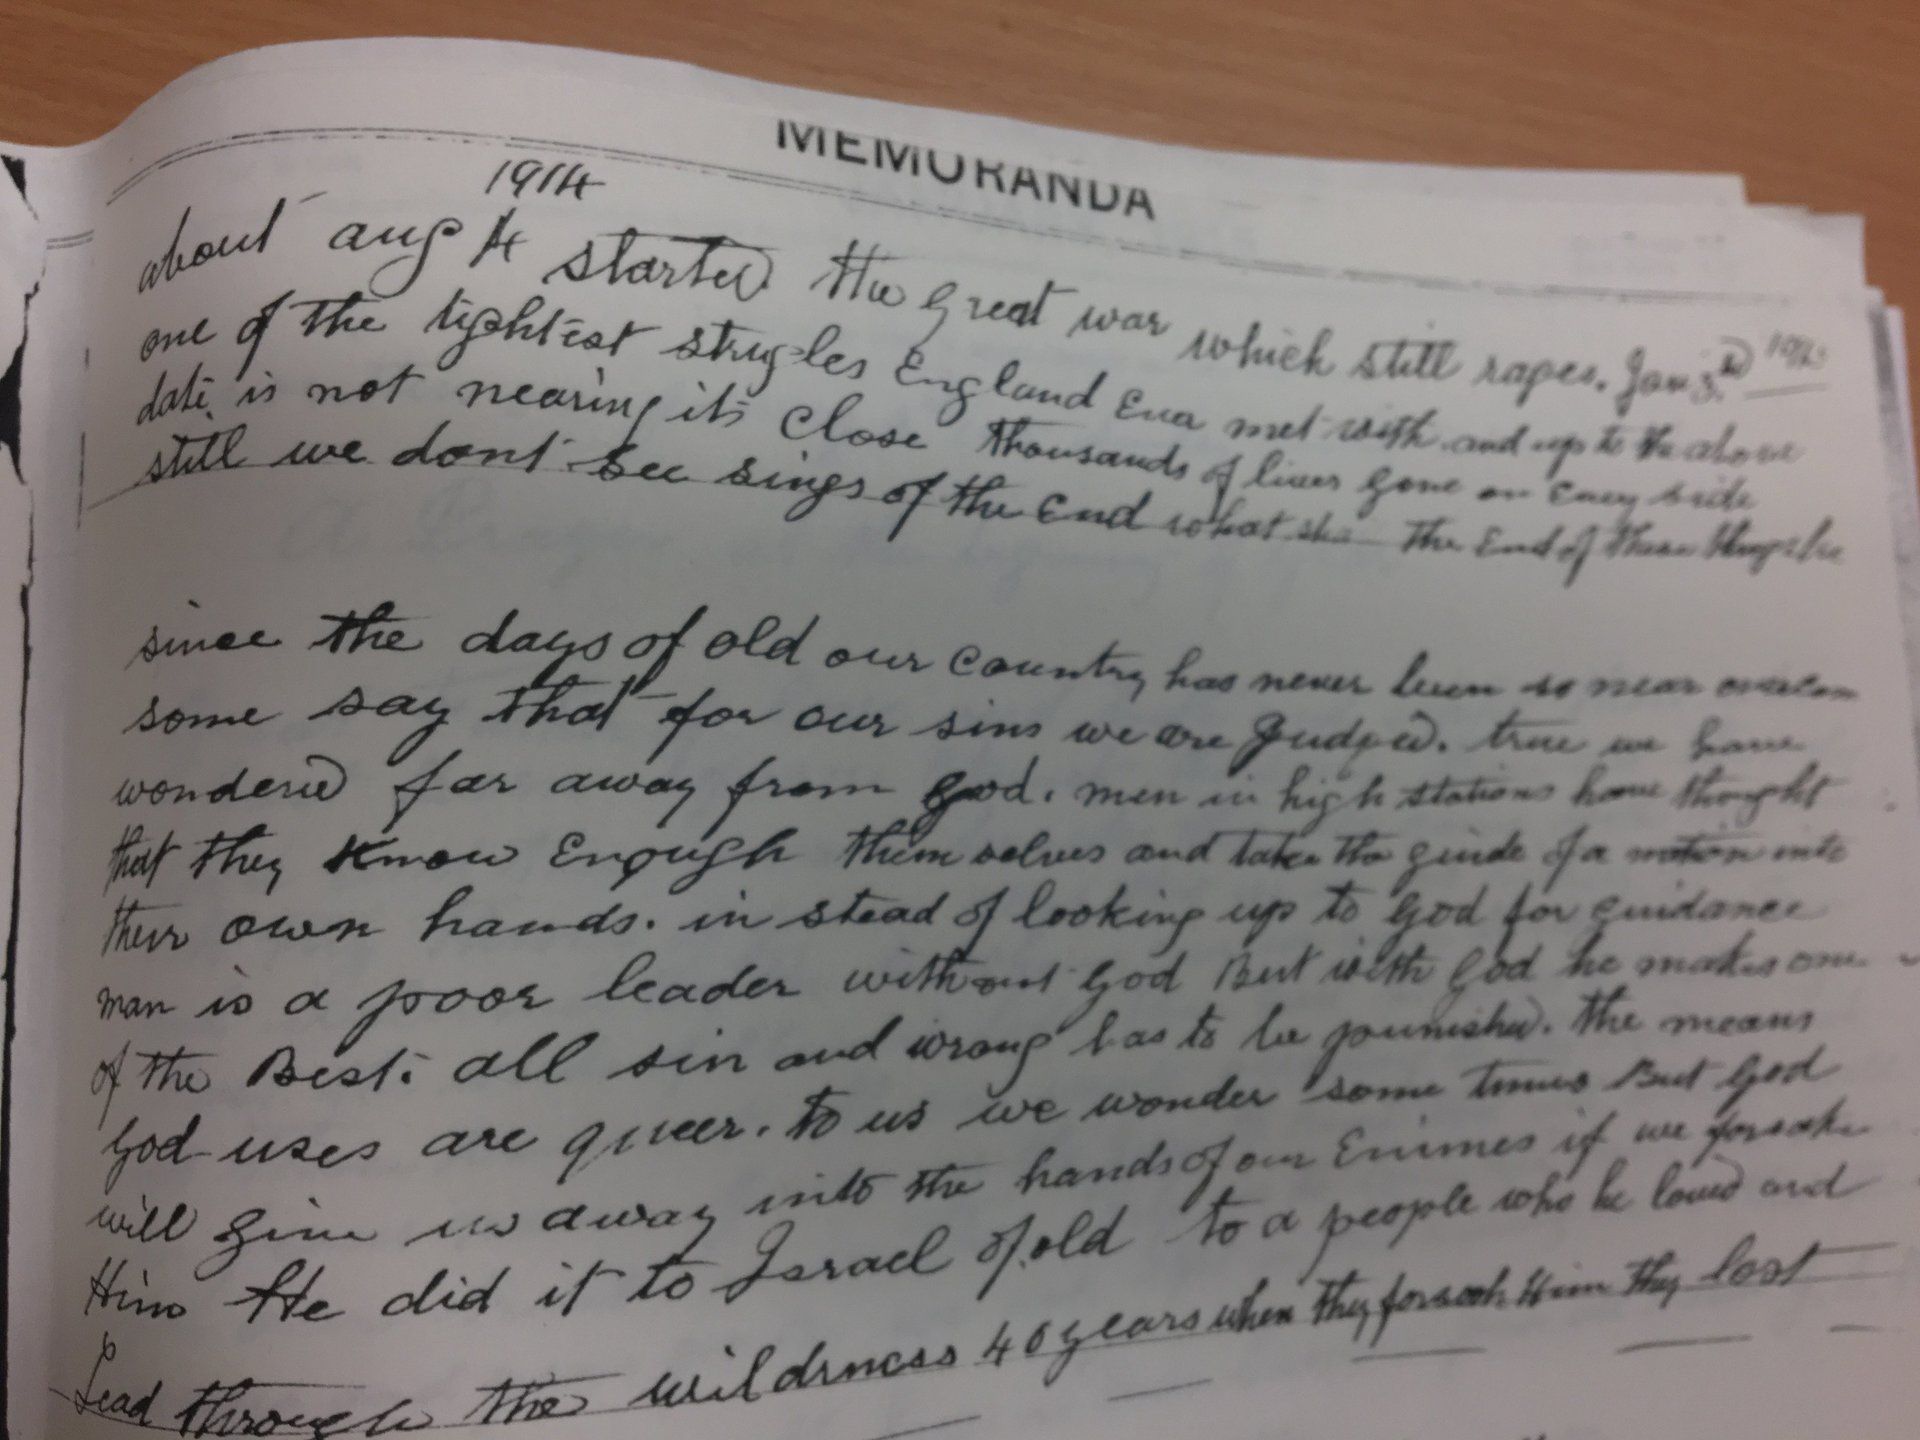 MEMORANDA
1914
about aug 4 started the great war which still rages. Jan 3rd
one of the tightest strugles England Ever met with and up to the above
date is not nearing its close thousands of lives gone on Every side
still we dont see sings of the End what the End of these things be
since the days of old our country has never been so near overcom
some say that for our sins we are Judged. true we have
wondered far away from god. men in high stations have thought
that they know Enough them selves and take the guide of a nation into
their own hands. in stead of looking up to God for guidance
man is a poor leader without God But with God he makes one
of the Best. all sin and wrong has to be punished. the means
God uses are queer. to us we wonder some times But God
will give us away into the hands of our Enimes if we forsake
Him He did it to Israel of old to a people who he loved and
Lead through the wilderness 40 years when they forsook Him they lost